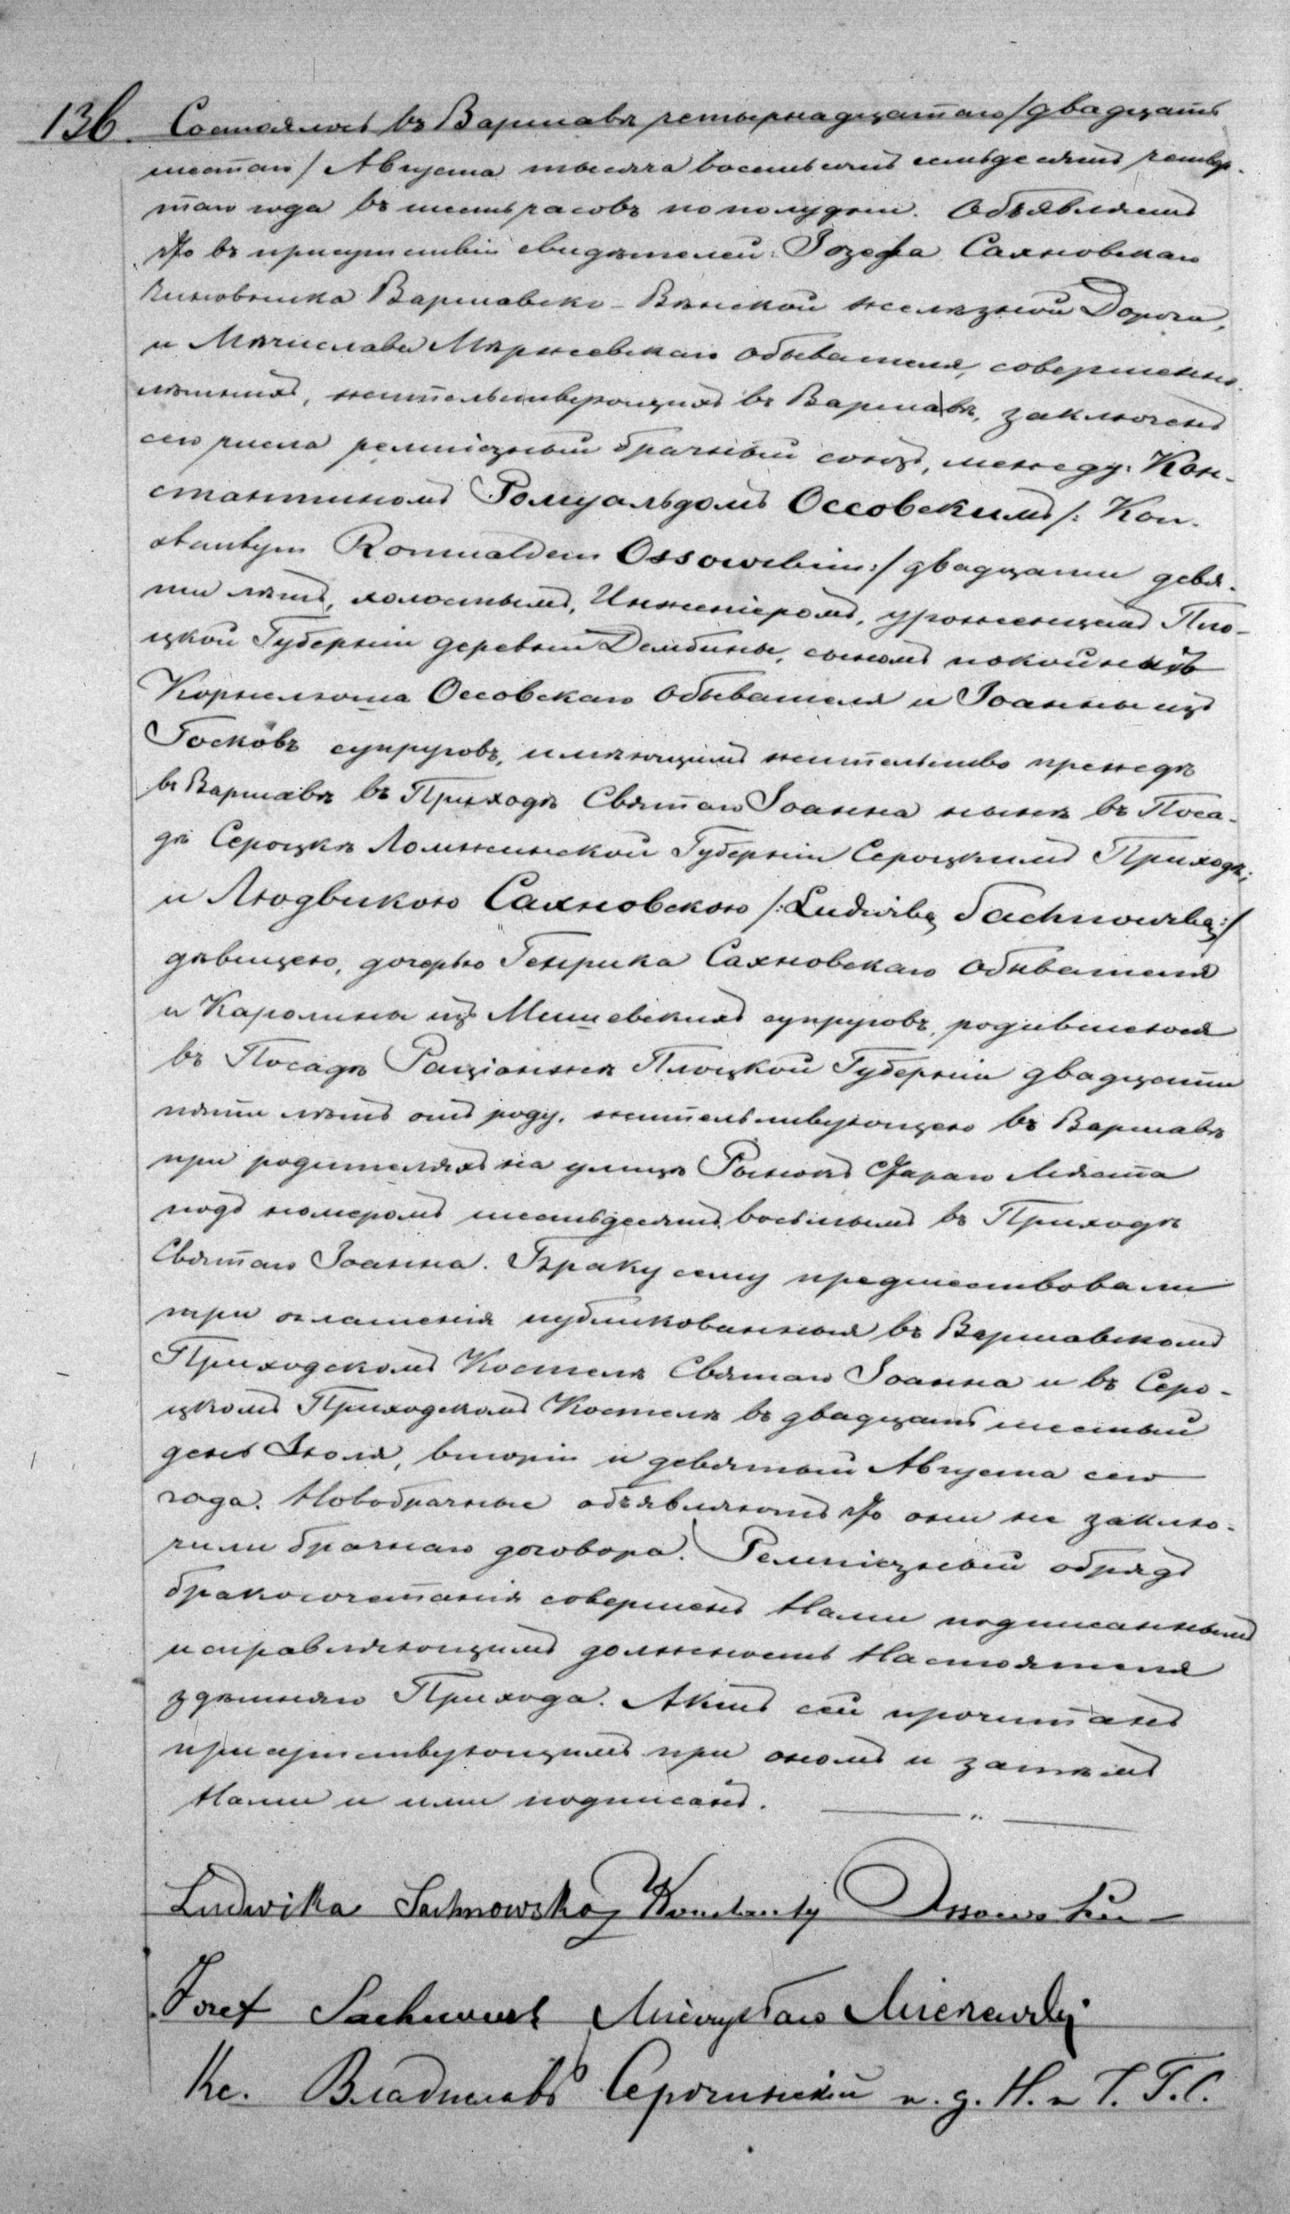 136. Состоялось въ Варшавѣ четырнадцатаго /двадцать
шестаго/ Августа тысяча восемьсотъ семьдесятъ четвер-
таго года въ шесть часовъ по полудни. Объявляемъ
что въ присутствіи свидѣтелей: Іозефа Сахновскаго
чиновника Варшавско-Вѣнской желѣзной Дороги,
и Мѣчислава Мѣржеевскаго обывателя, совершенно-
лѣтнихъ, жительствующихъ въ Варшавѣ, заключенъ
сего числа религіозный брачный союзъ, между: Кон-
стантиномъ Ромуальдомъ Оссовскимъ /: Kon-
stantym Romualdem Ossowskim :/ двадцати девя-
ти лѣтъ, холостымъ, Инженіеромъ, урожденцемъ Пло-
цкой Губерніи деревни Дембины, сыномъ покойныхъ
Корнелюша Оссовскаго Обывателя и Іоанны изъ
Госковъ супруговъ, имѣющимъ жительство прежде
въ Варшавѣ въ Приходѣ Святаго Іоанна нынѣ въ Поса-
дѣ Сероцкѣ Ломжинской Губерніи Сероцкимъ Приходѣ;
и Людвикою Сахновскою /: Ludwiką Sachnowską :/
дѣвицею, дочерью Генрика Сахновскаго Обывателя
и Каролины изъ Мишевскихъ супруговъ, родившеюся
въ Посадѣ Раціонжѣ Плоцкой Губерніи двадцати
пяти лѣтъ отъ роду, жительствующею въ Варшавѣ
при родителяхъ на улицѣ Рынокъ Стараго Мѣста
подъ номеромъ шестьдесятъ восьмымъ въ Приходѣ
Святаго Іоанна. Браку сему предшествовали
три оглашенія публикованныя въ Варшавскомъ
Приходскомъ Костелѣ Святаго Іоанна и въ Серо-
цкомъ Приходскомъ Костелѣ въ двадцать шестый
день Іюля, вторій и девятый Августа сего
года. Новобрачные объявляютъ что они не заклю-
чили брачнаго договора. Религіозный обрядъ
бракосочетанія совершенъ Нами подписаннымъ
исправляющимъ должность Настоятеля
здѣшняго Прихода. Актъ сей прочитанъ
присутствующимъ при ономъ и затѣмъ
Нами и ими подписанъ.
Ludwika Sachnowska Konstanty Ossowski
Józef Sachnowski Mieczysław
Кс. Владиславъ и. д. Н. и Ч. Г. С.